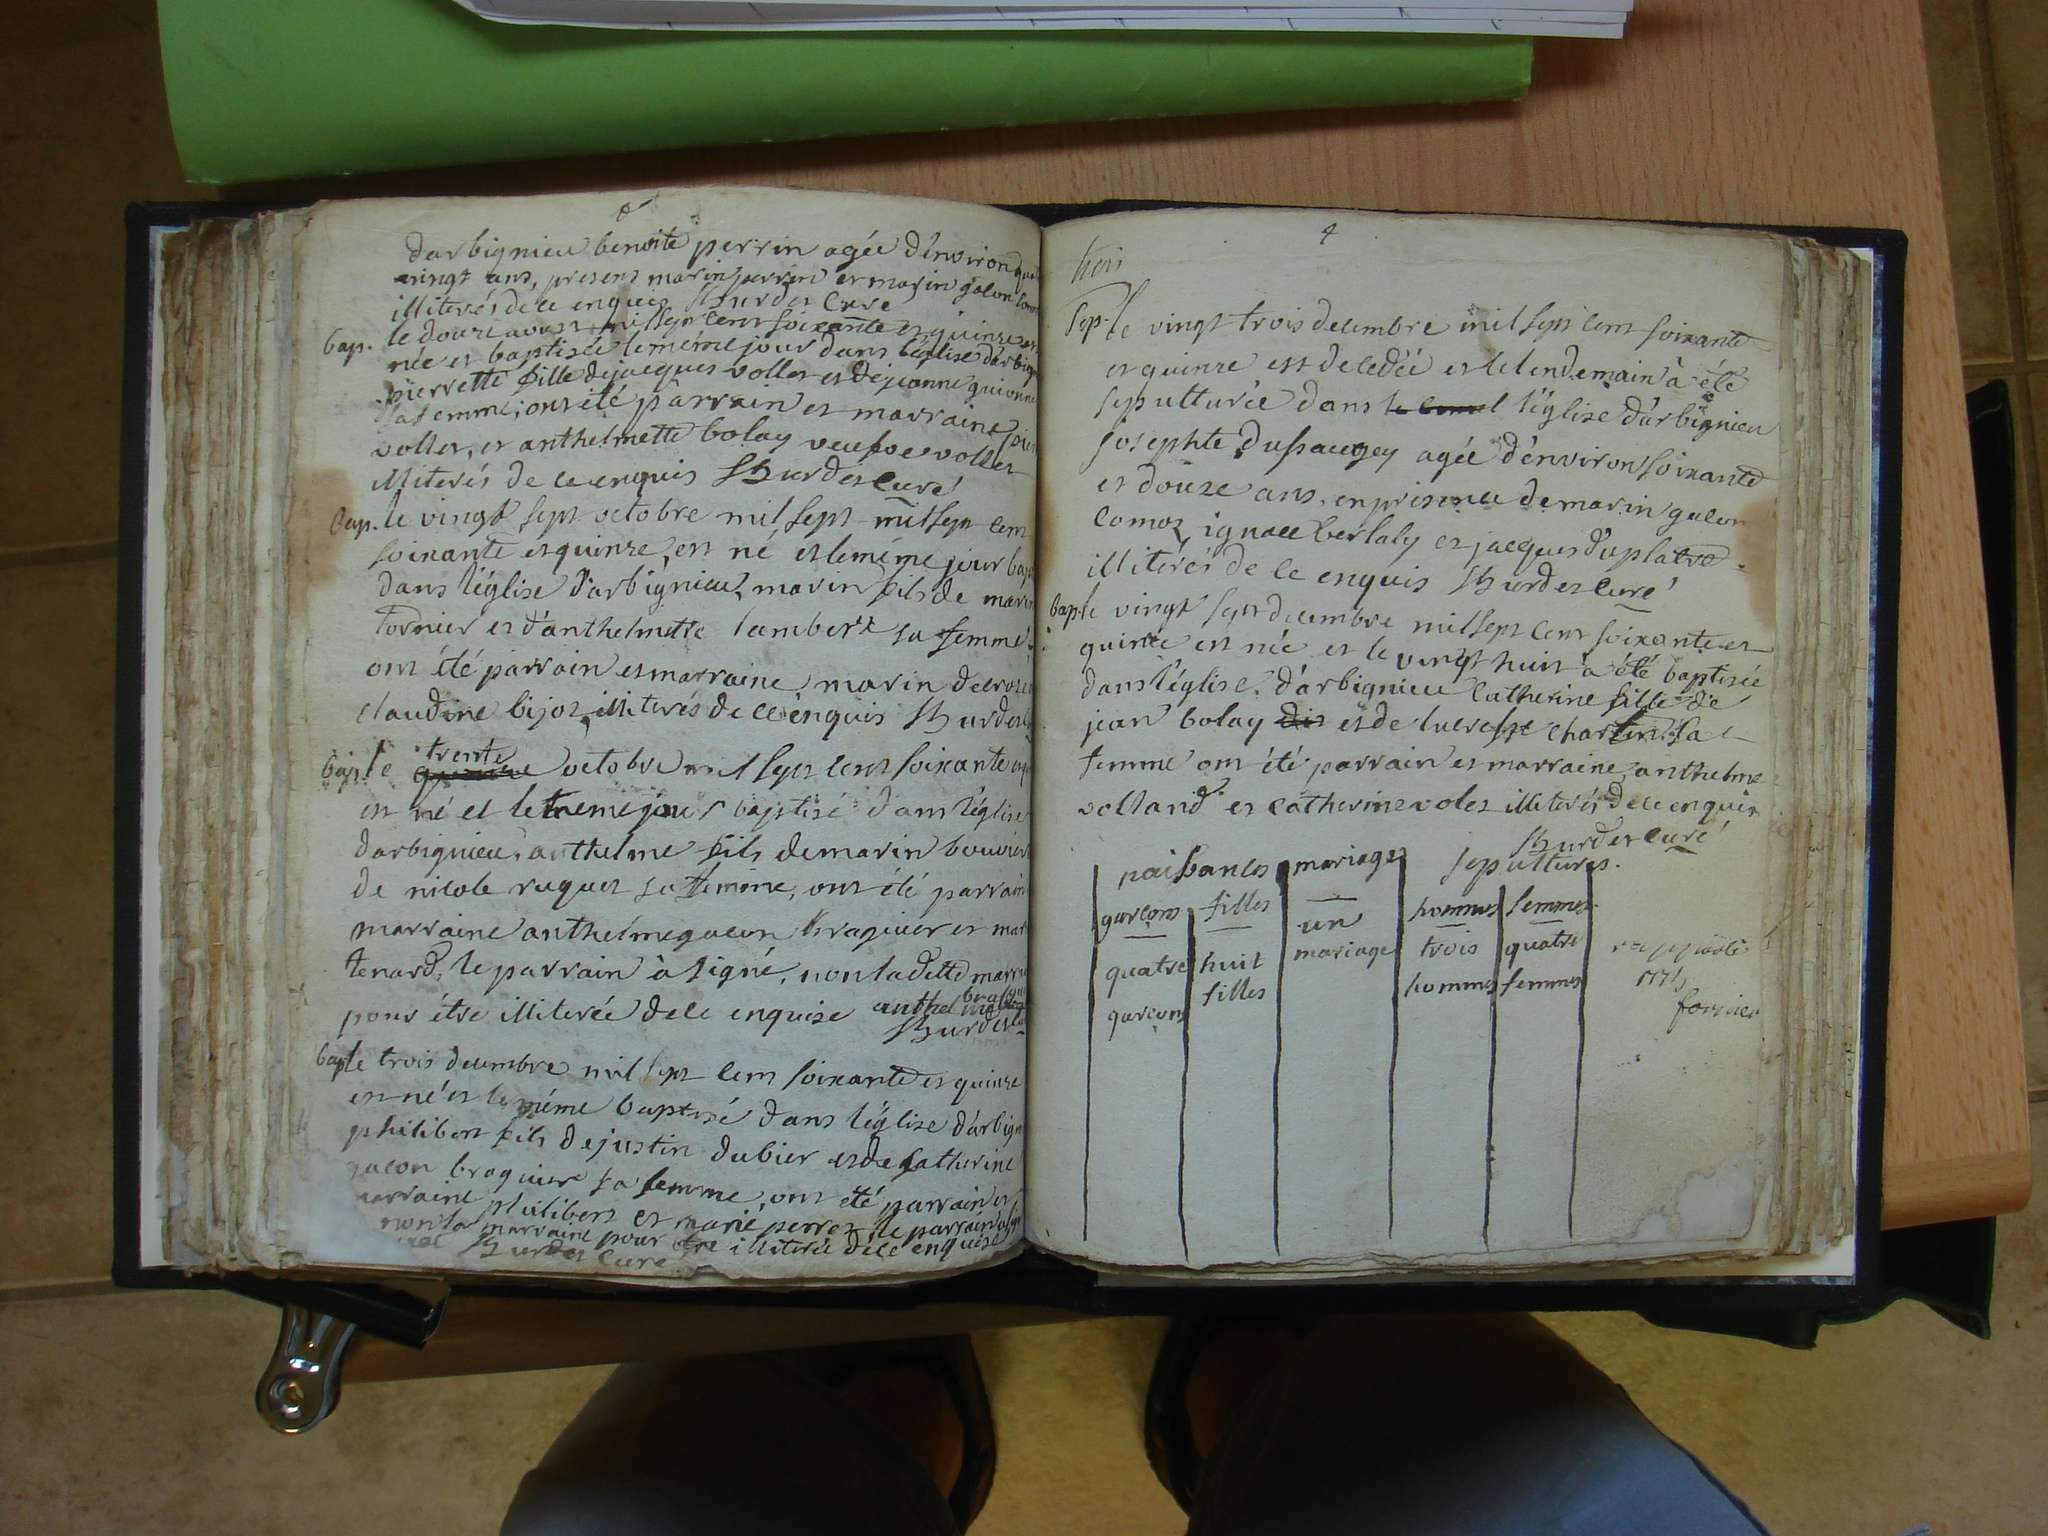 d'arbignieu benoite perrin agée d'environ
vingt ans, presens marin perrin et marin galon
illiterés de ce enquis SBurdet Curé
bap. le douze aoust mil sept cent soixante et quinze est
née et baptisée le méme jour dans l'église d'arbign
pierrette fille de jacques vollet et de jeanne
sa femme, ont été parrain et marraine
vollet, et anthelmette bolay veufve vollet
illiterés de ce enquis SBurdet Curé
bap. le vingt sept octobre mil sept mil sept cent
soixante et quinze, est né et le méme jour bap
dans l'église d'arbignieu, marin fils de marin
tornier et d'anthelmette lambert sa femme,
ont été parrain et marraine marin
claudine bijot, illiterés de ce enquis SBurdet
bap. le trente octobre mil sept cent soixante
est né et le meme jour baptisé dans l'église
d'arbignieu, anthelme fils de marin bouvier
de nicole ruquet sa femme, ont été parrain
marraine anthelme gueon braguier et mar
tenard, le parrain à signé, non ladette marr
pour étre illiterée de ce enquise anthelme
SBurdet
bap. le trois decembre mil sept cent soixante et quinze
est né et le méme baptisé dans l'église d'arbign
philibert fils de justin dubier et de catherine
gueon braguier sa femme, ont été parrain et
marraine philibert et marie perret, le parrain
non la marraine pour étre illiterée de ce enquise
SBurdet Curé
4
trois
Sep. le vingt trois decembre mil sept cent soixante
et quinze est decedée et le lendemain à été
sepulturée dans l'église d'arbignieu
josephte dussaugey agée d'environ soixante
et douze ans, en presence de marin galon
comoz, ignace berlaly et jacques duplatre
illitérés de ce enquis SBurdet Curé
bap. le vingt sept decembre mil sept cent soixante et
quinze est née et le vingt huit à été baptisée
dans l'église d'arbignieu Catherine fille de
jean bolay dit et de lucresse charlin sa
femme ont été parrain et marraine, anthelme
volland et catherine volet illiterés de ce enquis
SBurdet Curé
naissances mariages sepultures.
garçons filles un hommes femmes
quatre huit mariage trois quatre
garçons filles hommes femmes
rapporté
1775